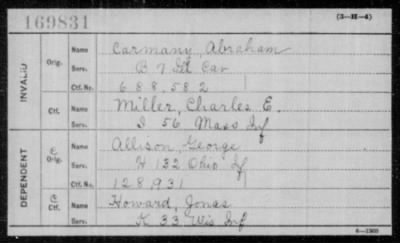 169831
(3—H—4)
INVALID
Orig. Name Carmany, Abraham
Serv. B 7 Ill Cav
Ctf. No. 688,582
Ctf. Name Miller, Charles E.
Serv. I 56 Mass Inf
DEPENDENT
C Orig. Name Allison, George
Serv. H 132 Ohio Inf
Ctf. No. 128,931
C Ctf. Name Howard, Jonas
Serv. K 33 Wis Inf
6—1909